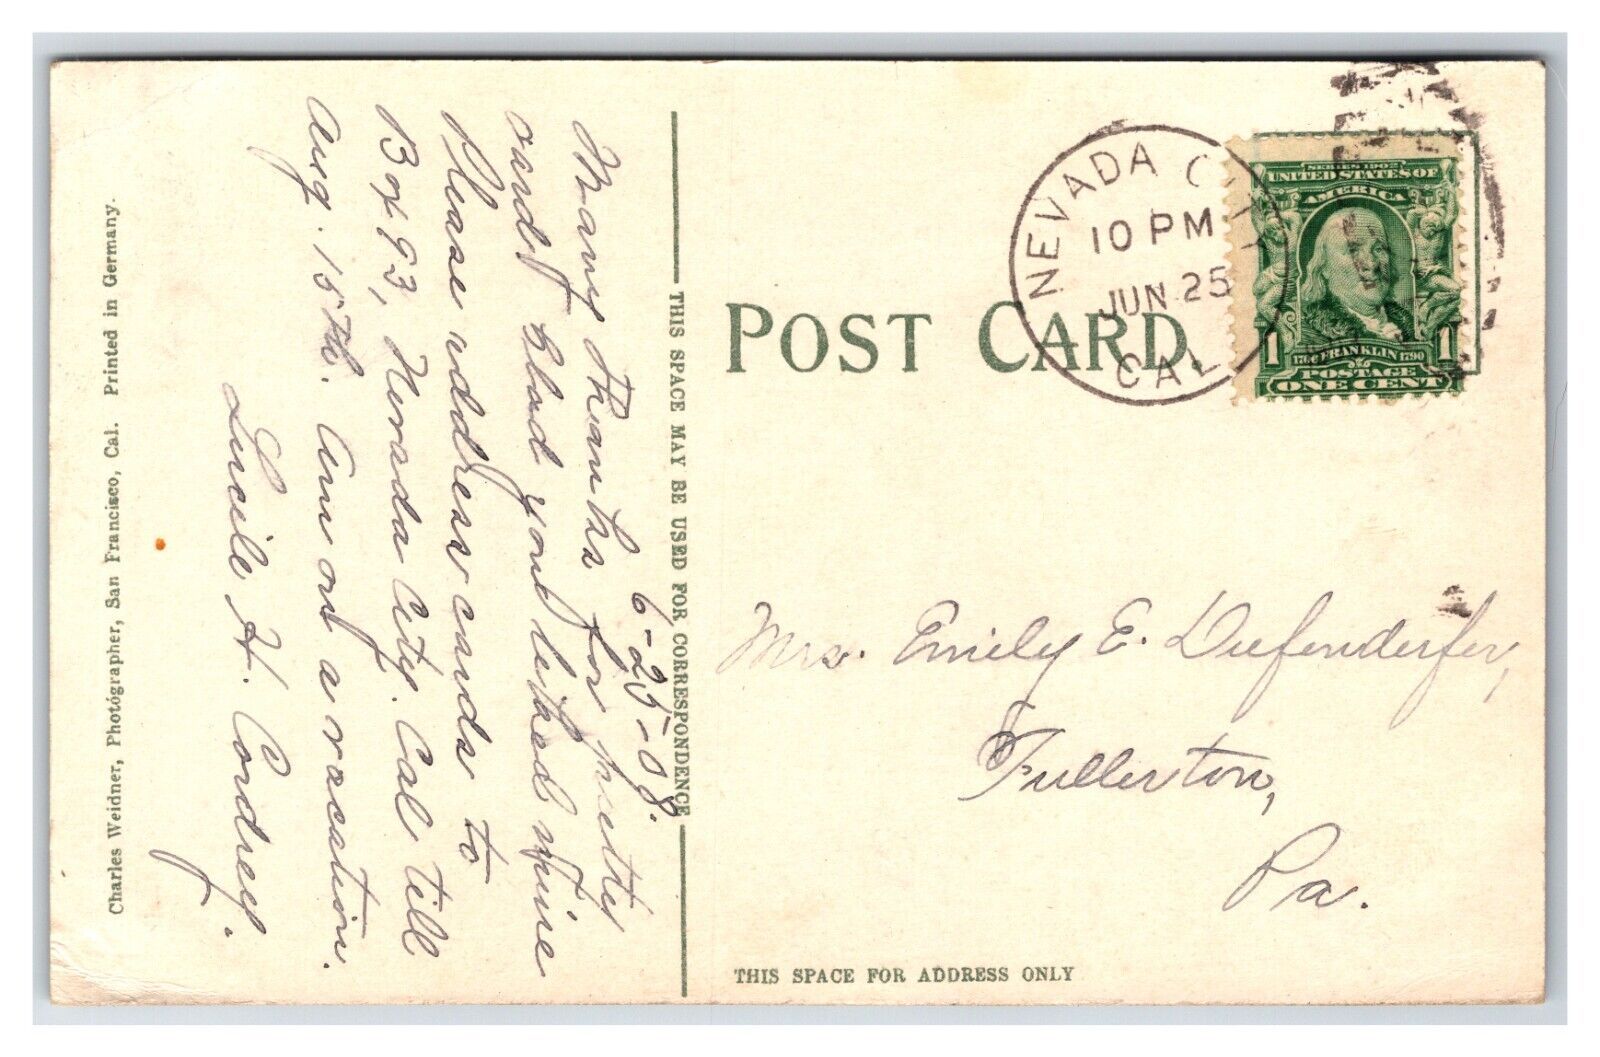 6-25-08.
Many Thanks for pretty
card. Glad you liked mine
Please address cards to
Box 93, Nevada City. Cal till
Aug. 15th. Am on a vacation.
Lucile H. Cordrey.
Charles Weidner, Photographer, San Francisco, Cal. Printed in Germany.
THIS SPACE MAY BE USED FOR CORRESPONDENCE
POST CARD
NEVADA CITY
10 PM
JUN 25
CAL.
SERIES 1902
UNITED STATES OF
AMERICA
1706 FRANKLIN 1790
1 1
POSTAGE
ONE CENT
Mrs. Emily E. Diefenderfer,
Fullerton,
Pa.
THIS SPACE FOR ADDRESS ONLY